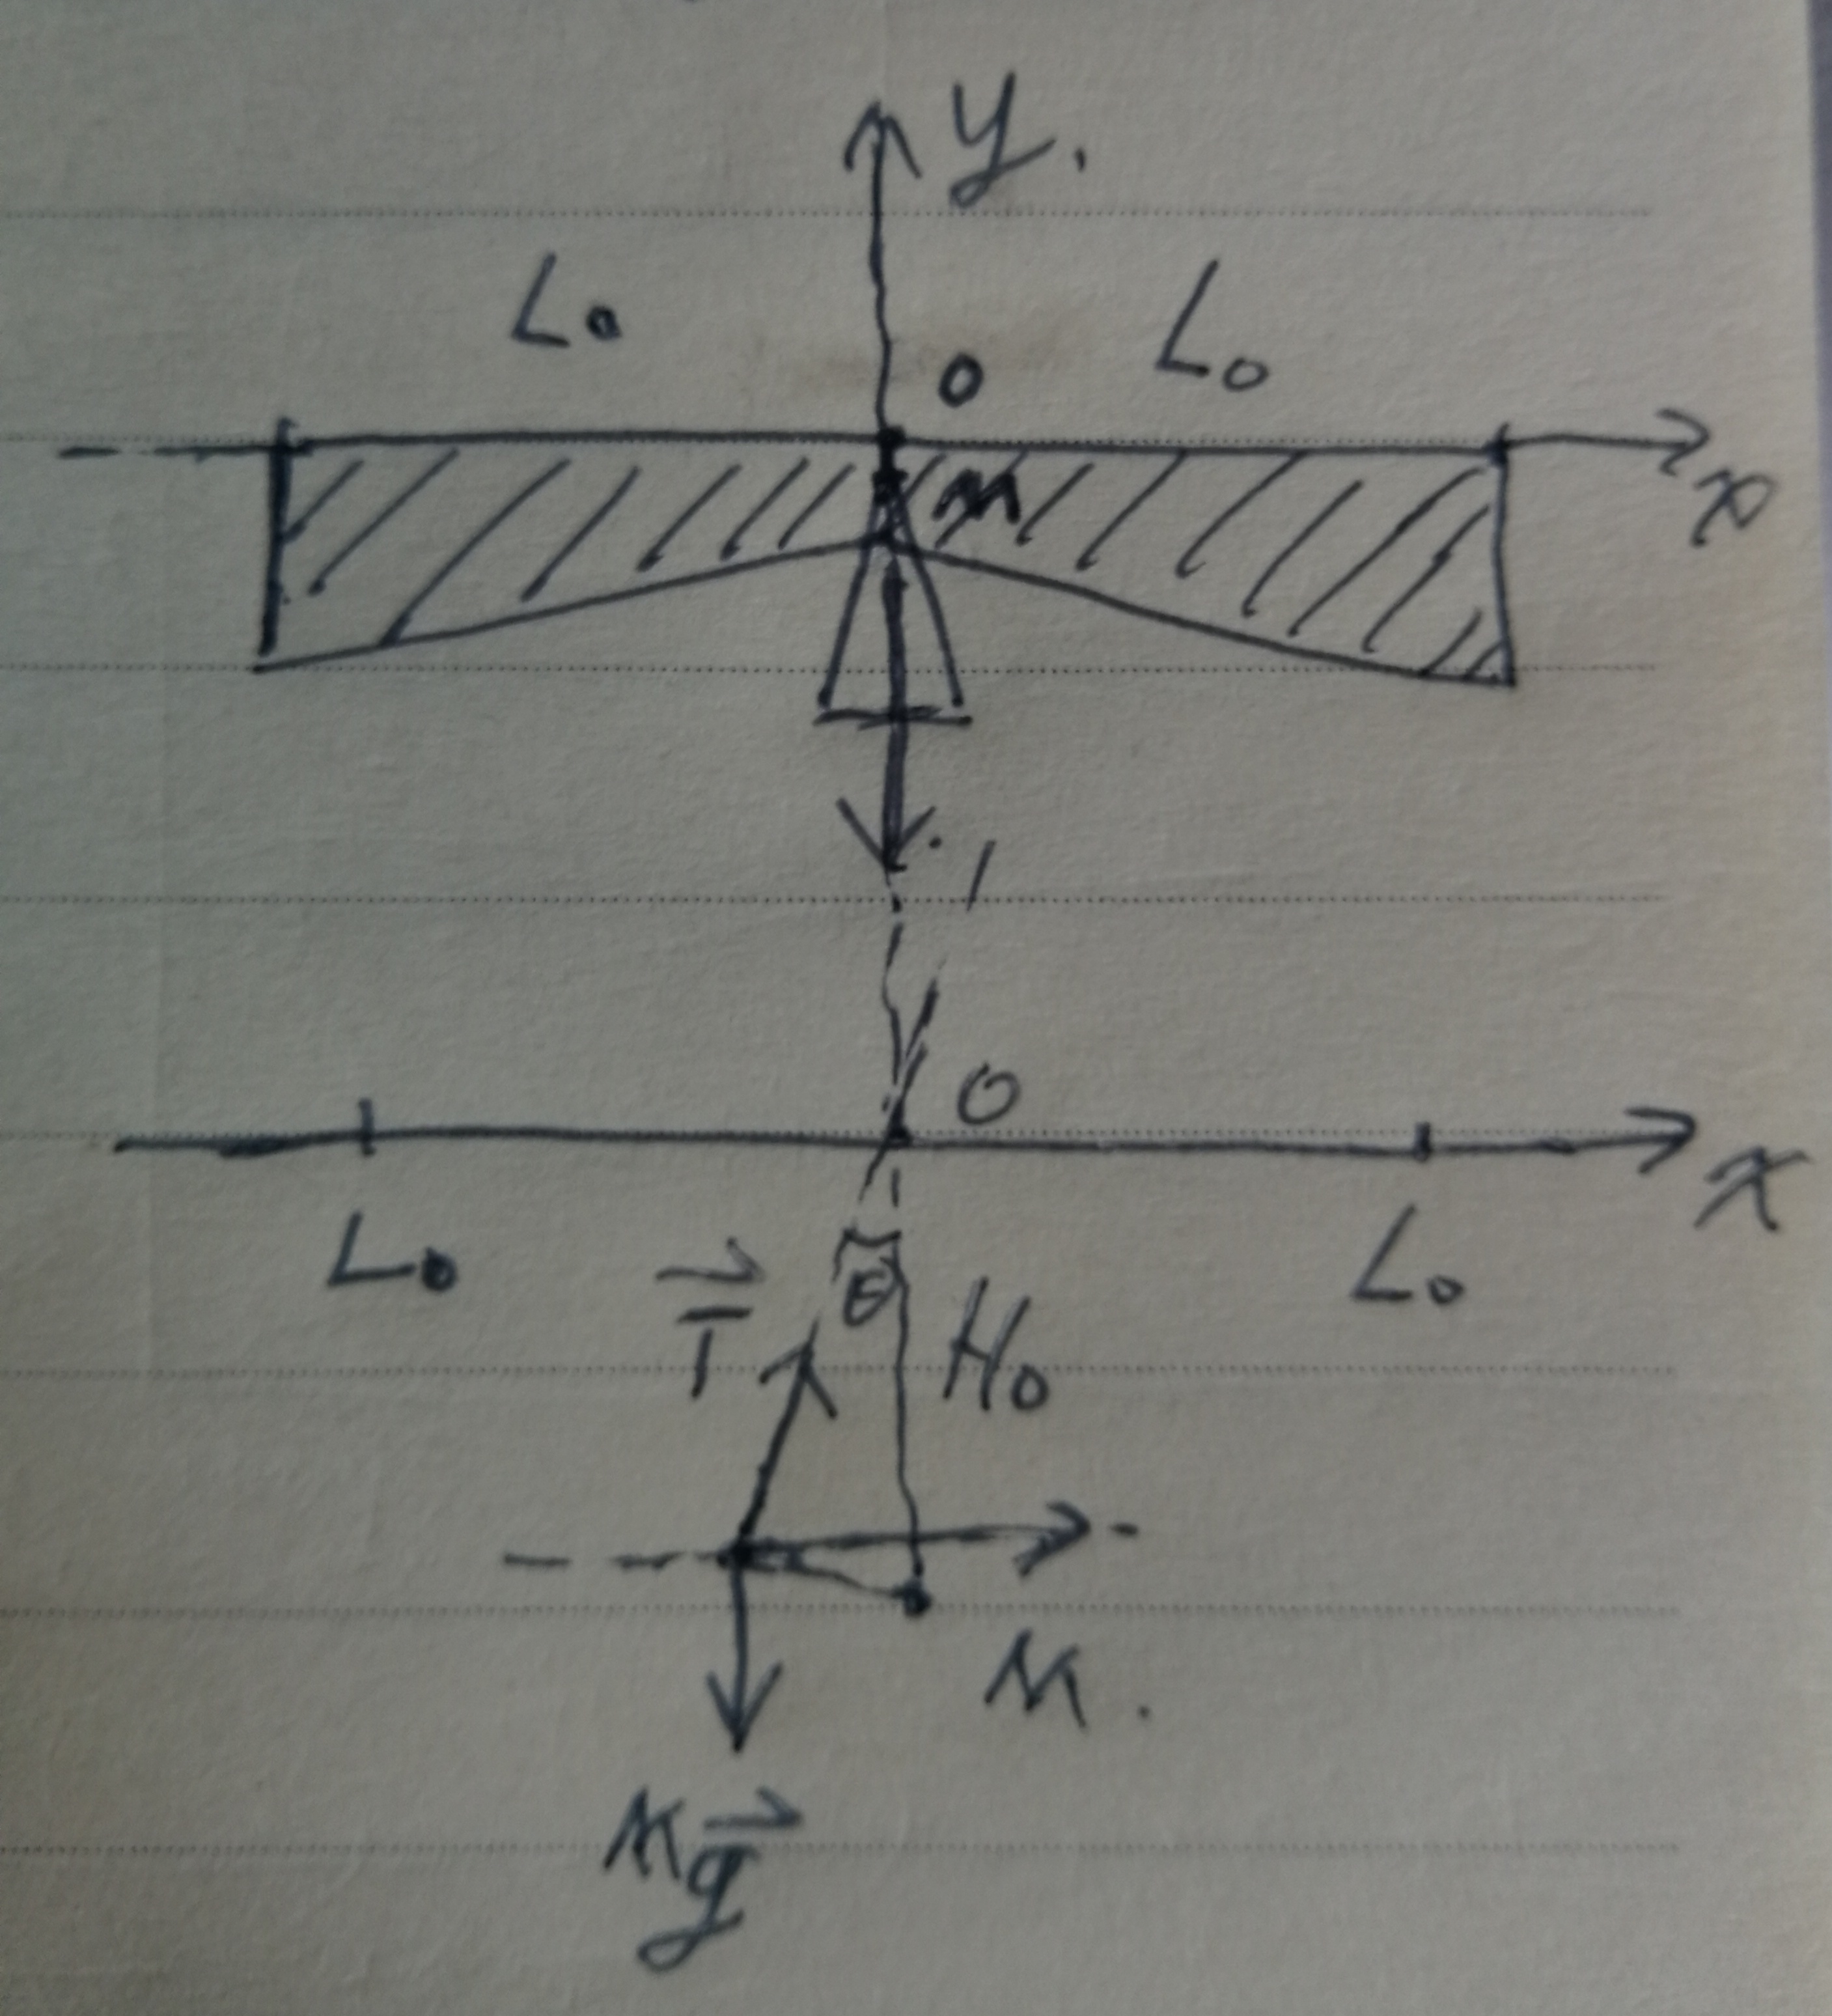 y.
L₀ L₀
O
M
x
O
x
L₀ L₀
T⃗ θ H₀
M.
Mg⃗